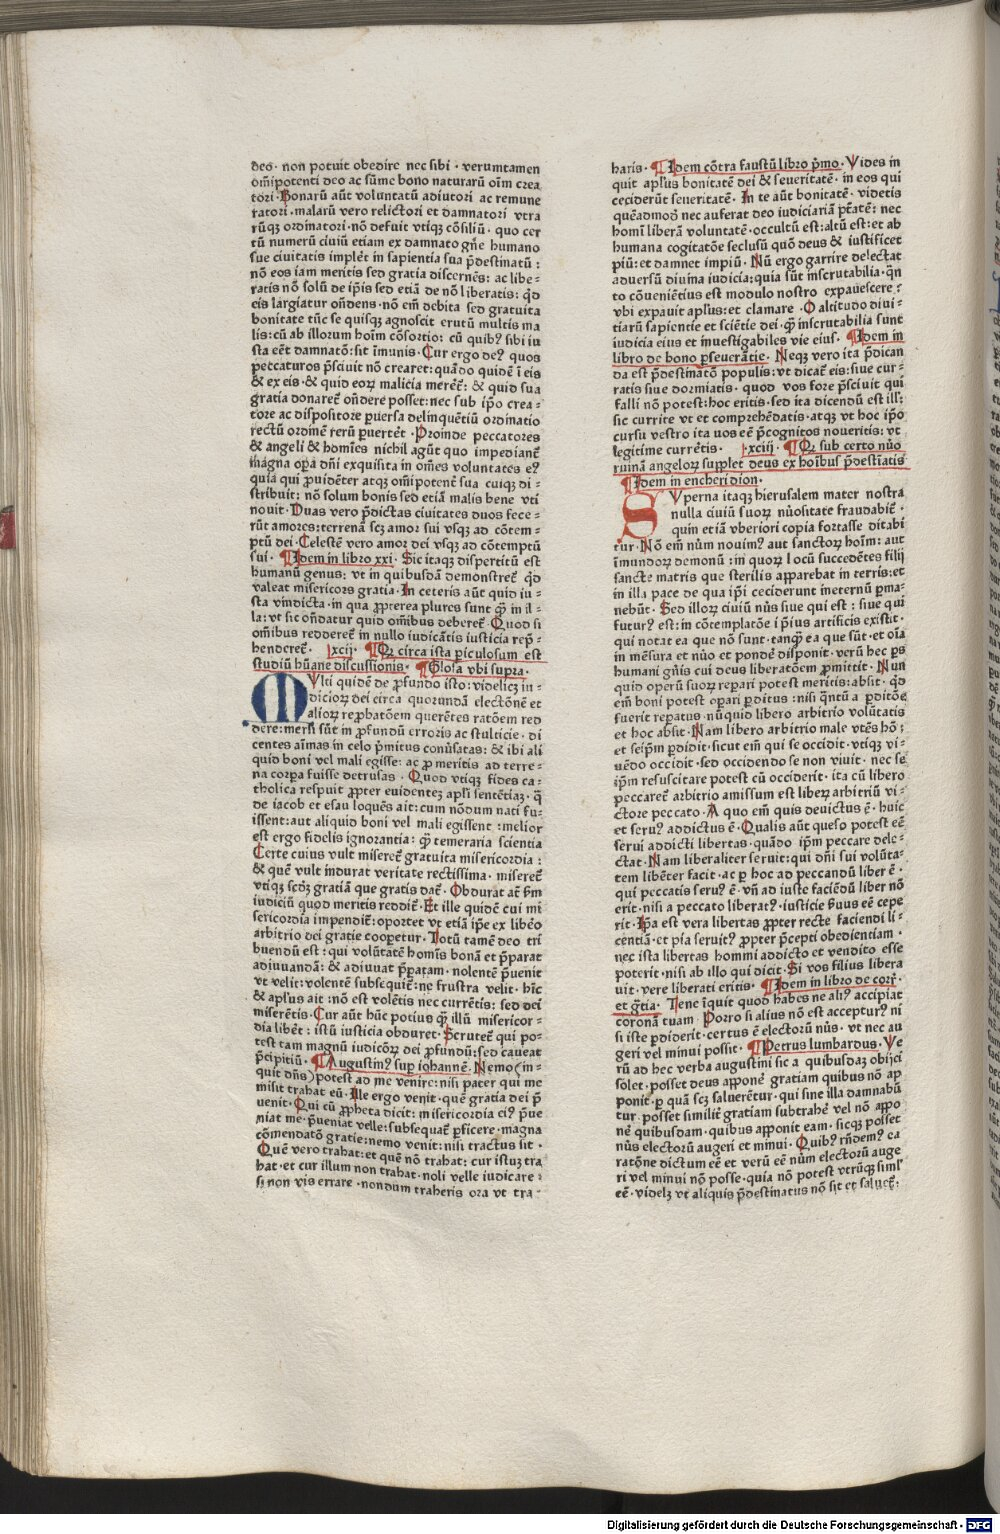 deo · non potuit obedire nec sibi · verumtamen
om̄ipotenti deo ac sūme bono naturarū oīm crea
tori · Bonarū aūt voluntatū adiutori ac remune
ratori · malarū vero relictori et damnatori vtra
rūqȝ ordinatori · nō defuit vtiqȝ cōsiliū · quo cer
tū numerū ciuiū etiam ex damnato gn̄e humano
sue ciuitatis implēt in sapientia sua p̄destinatū :
nō eos iam meritis sed gratia discernēs: ac libe⸗
ratis nō solū de ip̄is sed etiā de nō liberatis: qd̄
eis largiatur on̄dens · nō em̄ debita sed gratuita
bonitate tūc se quisqȝ agnoscit erutū multis ma
lis: cū ab illorum hoīm cōsortio: cū quibꝰ sibi iu
sta eēt damnatō: sit īmunis · Cur ergo deꝰ quos
peccaturos p̄sciuit nō crearet: quādo quidē ī eis
& ex eis · & quid eoꝝ malicia merēt̄: & quid sua
gratia donaret̄ on̄dere posset: nec sub ip̄o crea⸗
tore ac dispositore ꝑuersa delinquētiū ordinatio
rectū ordinē rerū ꝑuertēt · Proinde peccatores
& angeli & homīes nichil agūt quo impediant̄
magna oꝑa dn̄i exquisita in om̄es voluntates eꝰ
quia qui ꝓuidēter atqȝ om̄ipotent̄ sua cuiqȝ di⸗
stribuit: nō solum bonis sed etiā malis bene vti
nouit · Duas vero p̄dictas ciuitates duos fece⸗
rūt amores: terrenā scȝ amor sui vsqȝ ad cōtem⸗
ptū dei · Celestē vero amor dei vsqȝ ad cōtemptū
sui · ¶ Idem in libro xxi · Sic itaqȝ dispertitū est
humanū genus: vt in quibusdā demonstret̄ qd̄
valeat misericors gratia · In ceteris aūt quid iu⸗
sta vindicta · in qua ꝓpterea plures sunt qꝫ in il⸗
la: vt sic on̄datur quid om̄ibus deberet̄ · Quod si
om̄ibus redderet̄ in nullo iudicātis iusticia rep̄⸗
henderet̄ · xcij · ¶ Qꝫ circa ista ꝑiculosum est
studiū hūane discussionis · ¶ Glosa vbi supra ·
MVlti quidē de ꝓfundo isto: videlicȝ iu⸗
dicioꝝ dei circa quorundā electōnē et
alioꝝ reꝓbatōem querētes ratōem red
dere: mersi sūt in ꝓfundū erroris ac stulticie · di
centes aīmas in celo p̄mitus conūsatas: & ibi ali
quid boni vel mali egisse: ac ꝓ meritis ad terre⸗
na corꝑa fuisse detrusas · Quod vtiqȝ fides ca⸗
tholica respuit ꝓpter euidentez apl̄i sentētiaȝ · q̄
de iacob et esau loquēs ait: cum nōdum nati fu⸗
issent: aut aliquid boni vel mali egissent : melior
est ergo fidelis ignorantia: qꝫ temeraria scientia
Certe cuius vult miseret̄ gratuita misericordia :
& quē vult indurat veritate rectissima · miseret̄
vtiqȝ scd̄ȝ gratiā que gratis dat̄ · Obdurat at̄ ẜm
iudiciū quod meritis reddit̄ · Et ille quidē cui mi
sericordia impendit̄: oportet vt etiā ip̄e ex libēo
arbitrio dei gratie cooꝑetur · Totū tamē deo tri
buendū est : qui volūtatē homīs bonā et p̄parat
adiuuandā: & adiuuat p̄paratam · nolentē p̄uenit
vt velit: volentē subsequit̄: ne frustra velit · hīc
& apl̄us ait : nō est volētis nec currētis: sed dei
miserētis · Cur aūt hūc potius qꝫ illū misericor⸗
dia liberet̄ : istū iusticia obduret · Scrutet̄ qui po⸗
test tam magnū iudicōꝝ dei ꝓfundū: sed caueat
p̄cipitiū · ¶ Augustinꝰ suꝑ iohannē · Nemo (in⸗
quit dn̄s) potest ad me venire: nisi pater qui me
misit trahat eū · Ille ergo venit · quē gratia dei p̄
uenit · Qui cū ꝓpheta dicit: misericordia eiꝰ p̄ue
niat me · p̄ueniat velle: subsequat̄ ꝑficere · magna
cōmendatō gratie: nemo venit: nisi tractus sit ·
Quē vero trahat: et quē nō trahat: cur istuȝ tra
hat · et cur illum non trahat · noli velle iudicare :
si non vis errare · nondum traheris ora vt tra⸗
haris · ¶ Idem cōtra faustū libro p̄mo · Vides in
quit apl̄us bonitatē dei & seueritatē · in eos qui
ceciderūt seueritatē · In te aūt bonitatē · videtis
quēadmoȝ nec auferat deo iudiciariā ptātē: nec
homī liberā voluntatē · occultū est: altū est: et ab
humana cogitatōe seclusū quō deus & iustificet
piū: et damnet impiū · Nū ergo garrire delectat
aduersū diuina iudicia: quia sūt inscrutabilia · qn̄
to cōueniētius est modulo nostro expauescere :
vbi expauit apl̄us: et clamare · O altitudo diui⸗
tiarū sapientie et sciētie dei · qꝫ inscrutabilia sunt
iudicia eius et inuestigabiles vie eiusˀ · ¶ Idem in
libro de bono ꝑseuerātie · Neqȝ vero ita p̄dican
da est p̄destinatō populis: vt dicat̄ eis: siue cur⸗
ratis siue dormiatis · quod vos fore p̄sciuit qui
falli nō potest: hoc eritis · sed ita dicendū est ill̄:
sic currite vt et comprehēdatis · atqȝ vt hoc ip̄o
cursu vestro ita uos eē p̄cognitos noueritis: vt
legitime currētis · xciij · ¶ Qꝫ sub certo nūo
ruinā angeloꝝ supplet deus ex hoībus p̄destīatis
¶ Idem in encheridion ·
SVperna itaqȝ hierusalem mater nostra
nulla ciuiū suoꝝ nūositate fraudabit̄ ·
quin etiā vberiori copia fortasse ditabi
tur · Nō em̄ nūm nouimꝰ aut sanctoꝝ hoīm: aut
īmundoꝝ demonū : in quoꝝ locū succedētes filij
sancte matris que sterilis apparebat in terris: et
in illa pace de qua ip̄i ceciderunt īneternū ꝑma⸗
nebūt · Sed illoꝝ ciuiū nūs siue qui est : siue qui
futurꝰ est: in cōtemplatōe ip̄ius artificis existit ·
qui notat ea que nō sunt · tanqꝫ ea que sūt · et oīa
in mēsura et nūo et pondē disponit · verū hec ps̄
humani gn̄is cui deus liberatōem ꝓmittit · Nun
quid operū suoꝝ repari potest meritis: absit · qd̄
em̄ boni potest oꝑari ꝑditus : nisi qn̄tū a ꝑditōe
fuerit reꝑatus · nūquid libero arbitrio volūtatis
et hoc absit · Nam libero arbitrio male vtēs hō ;
et seip̄m ꝑdidit · sicut em̄ qui se occidit · vtiqȝ vi⸗
uēdo occidit · sed occidendo se non viuit · nec se
ip̄m resuscitare potest cū occiderit · ita cū libero
peccaret̄ arbitrio amissum est liberȝ arbitriū vi⸗
ctore peccato · A quo em̄ quis deuictus ē · huic
et seruꝰ addictus ē · Qualis aūt queso potest eē
serui addicti libertas · quādo ip̄m peccare dele⸗
ctat · Nam liberaliter seruit: qui dn̄i sui volūta⸗
tem libēter facit · ac ꝑ hoc ad peccandū liber ē ·
qui peccatis seruꝰ ē · vn̄ ad iuste faciēdū liber nō
erit · nisi a peccato liberatꝰ · iusticie ẜuus eē cepe
rit · Ip̄a est vera libertas ꝓpter recte faciendi li⸗
centiā · et pia seruitꝰ ꝓpter p̄cepti obedientiam ·
nec ista libertas hommi addicto et vendito esse
poterit · nisi ab illo qui dicit · Si vos filius libera
uit · vere liberati eritis · ¶ Idem in libro de corr̄ ·
et gr̄tia · Tene īquit quod habes ne aliꝰ accipiat
coronā tuam · Porro si alius nō est accepturꝰ ni
si iste ꝑdiderit · certus ē electorū nūs · vt nec au
geri vel minui possit · ¶ Petrus lumbardus · Ve
rū ad hec verba augustini sic a quibusdaȝ obijci
solet · posset deus apponē gratiam quibus nō ap
ponit · ꝑ quā scȝ saluerētur · qui sine illa damnabū
tur · posset similit̄ gratiam subtrahē vel nō appo
nē quibusdam · quibus apponit eam · sicqȝ posset
nūs electorū augeri et minui · Quibꝰ rn̄demꝰ ea
ratōne dictum eē et verū eē nūm electorū auge
ri vel minui nō posse · quia nō potest vtrūqȝ siml̄
eē · videlȝ vt aliquis p̄destinatus nō sit et saluet̄:
Digitalisierung gefördert durch die Deutsche Forschungsgemeinschaft - DFG